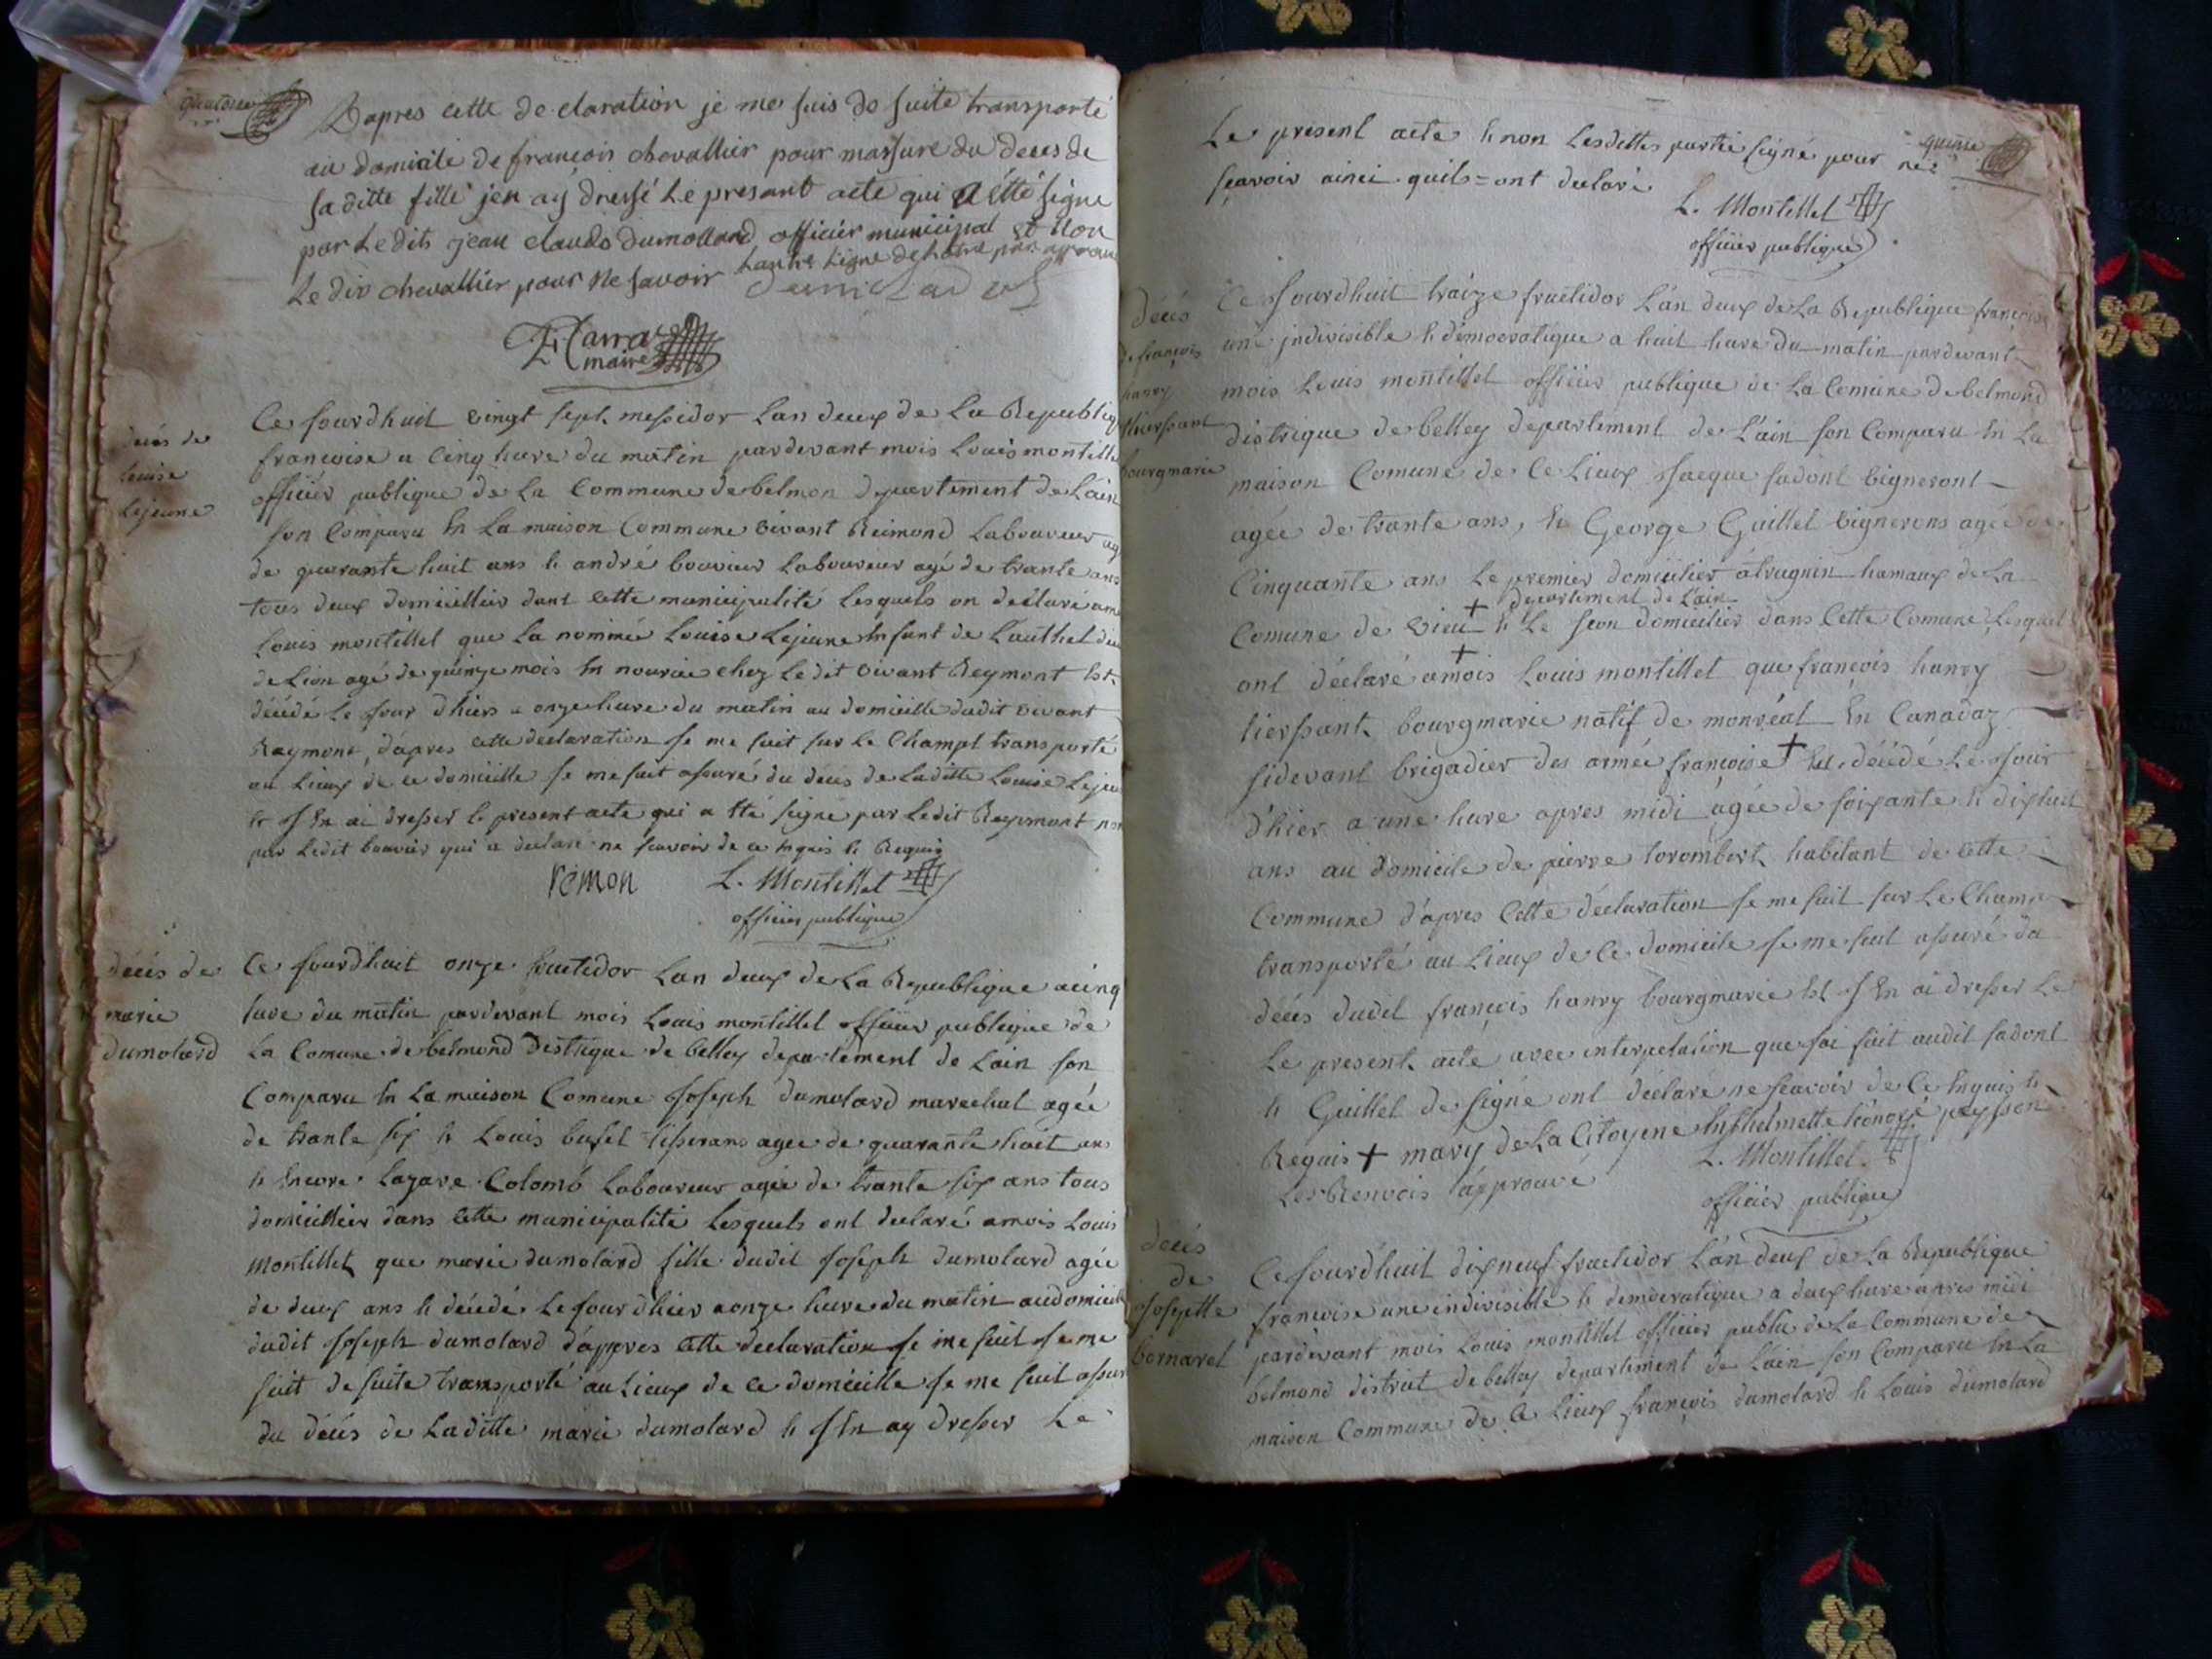 D'apres cette declaration je me suis de suite transporté
au domicile de françois chevallier pour massure du deces de
sa ditte fille jen ay dressé le presant acte qui a étté signe
par Ledits jean claude dumollard officier municipal et Non
Le dit chevallier pour Ne savoir
maire
décés de
Louise
Lejeune
Ce Jourdhuit vingt sept messidor Lan deux de La Republiq
francoise a Cinq hure du matin pardevant mois Louis montille
officier publique de La Commune de belmon departement de Lain
son Comparu En La maison Commune vivant Reimond Laboureur ag
de quarante huit ans et andré bouvier Laboureur agé de trante ans
tous deux domicillier dant cette municipalité Lesquels on déclaré a
Louis montillet que La nommée Louise Lejeune Enfant de
de Lion agé de quinze mois En nourice chez Ledit vivant Reymont Est
décédé Le Jour d'hiers a onze hure du matin au domicille dudit vivant
Raymont, d'apres cette declaration Je me suit sur Le Champt transporté
au Lieux de ce domicille Je me suit assuré du décés de Laditte Louise Lejeu
et J En ai dresser le present acte qui a été signe par Ledit Raymont non
par Ledit bouvier qui a declaré ne scavoir de ce Enquis et Requis
rémon L. Montillet
officier publique
décés de
marie
dumolard
Ce Jourdhuit onze fructidor Lan deux de La Republique a cinq
hure du matin pardevant mois Louis montillet officier publique de
La Comune de belmond destrique de belley departement de Lain son
Comparu En La maison Comune Joseph dumolard marechal agée
de trante six et Louis bufet tisserans agée de quarante huit ans
et Encore Lazare Colomb Laboureur agée de trante six ans tous
domicillier dans cette municipalité Lesquels ont declaré amois Louis
Montillet que marie dumolard fille dudit Joseph dumolard agée
de deux ans et décédé Le Jour d'hier a onze hure du matin audomicile
dudit Joseph dumolard d'appres cette declaration Je me suit Je me
suit de suite transporté au Lieux de ce domicille Je me suit assur
du décés de Laditte marie dumolard et J En ay dresser Le
quinze
Le present acte et non Lesdittes partie signé pour ne
scavoir ainci quils=ont declaré
L. Montillet
officier publique
décés
de françois
hanry
thiersant
bourgmarie
Ce Jourdhuit traize fructidor L'an deux de La Republique françoise
une indivisible et démocratique a huit hure du matin pardevant
mois Louis montillet officier publique de La Comune de belmond
distrique de belley departement de L'ain son Comparu En La
maison Comune de Ce Lieux Jacque Jadont vigneront
agée de trante ans, et George Guillet vignerons agée de
Cinquante ans Le premier domicilier a trugnin hamaux de La
departement de Lain
Comune de vieu + et Le secon domicilier dans Cette Comune Lesquel
+
ont déclaré amois Louis montillet que françois hanry
tiersant bourgmarie natif de monréal En Canadaz
sidevant brigadier des armée françoise + Est décédé Le Jour
d'hier a une hure apres midi agée de soixante et dixhuit
ans au domicile de pierre torombert habitant de cette
Commune d'apres Cette déclaration Je me suit sur Le Champ
transporté au Lieux de Ce domicile Je me suit assuré du
décés dudit françois hanry bourgmarie Et J En ai dresser Le
Le present acte avec interpelation que Jai fait audit Jadont
et Guillet de signé ont déclaré ne scavoir de Ce Enquis et
Requis + mary de La Citoyene Enthelmette honoré peysson
L. Montillet
Les Renvois approuvé
officier publique
décés
de
Josephte
bornaret
Ce Jourdhuit dixneuf fructidor L'an deux de La Republique
francoise une indivisible et democratique a deux hure apres midi
pardevant mois Louis montillet officier publu de La Commune de
belmond district de belley departement de Lain son Comparu En La
maison Commune de Ce Lieux françois dumolard et Louis dumolard